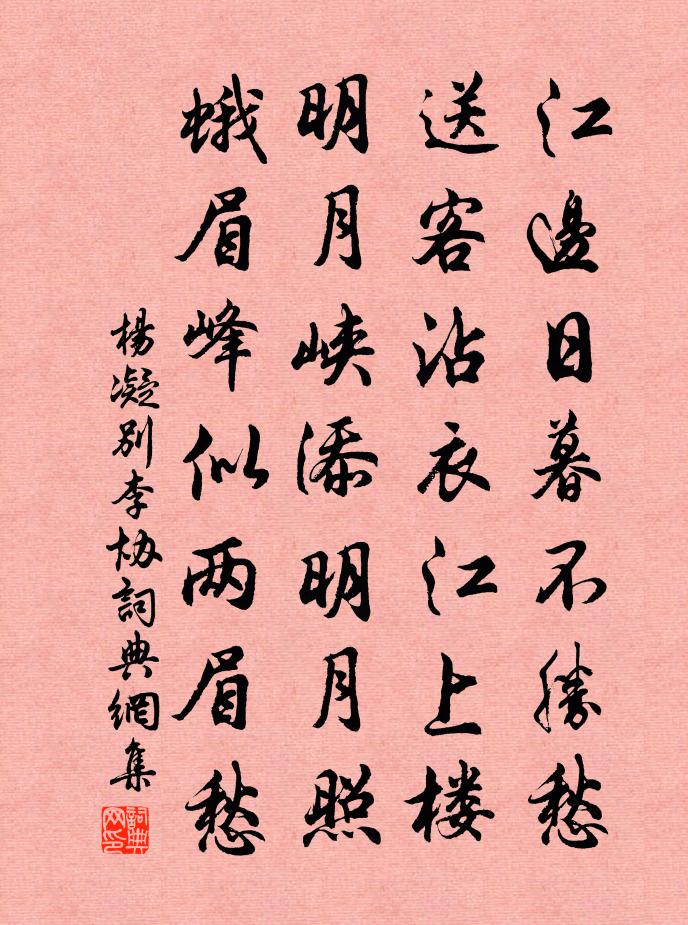 江邊日暮不勝愁
送客沾衣江上楼
明月峽添明月照
蛾眉峰似两眉愁
楊凝別李协詞典網集
詞典网印